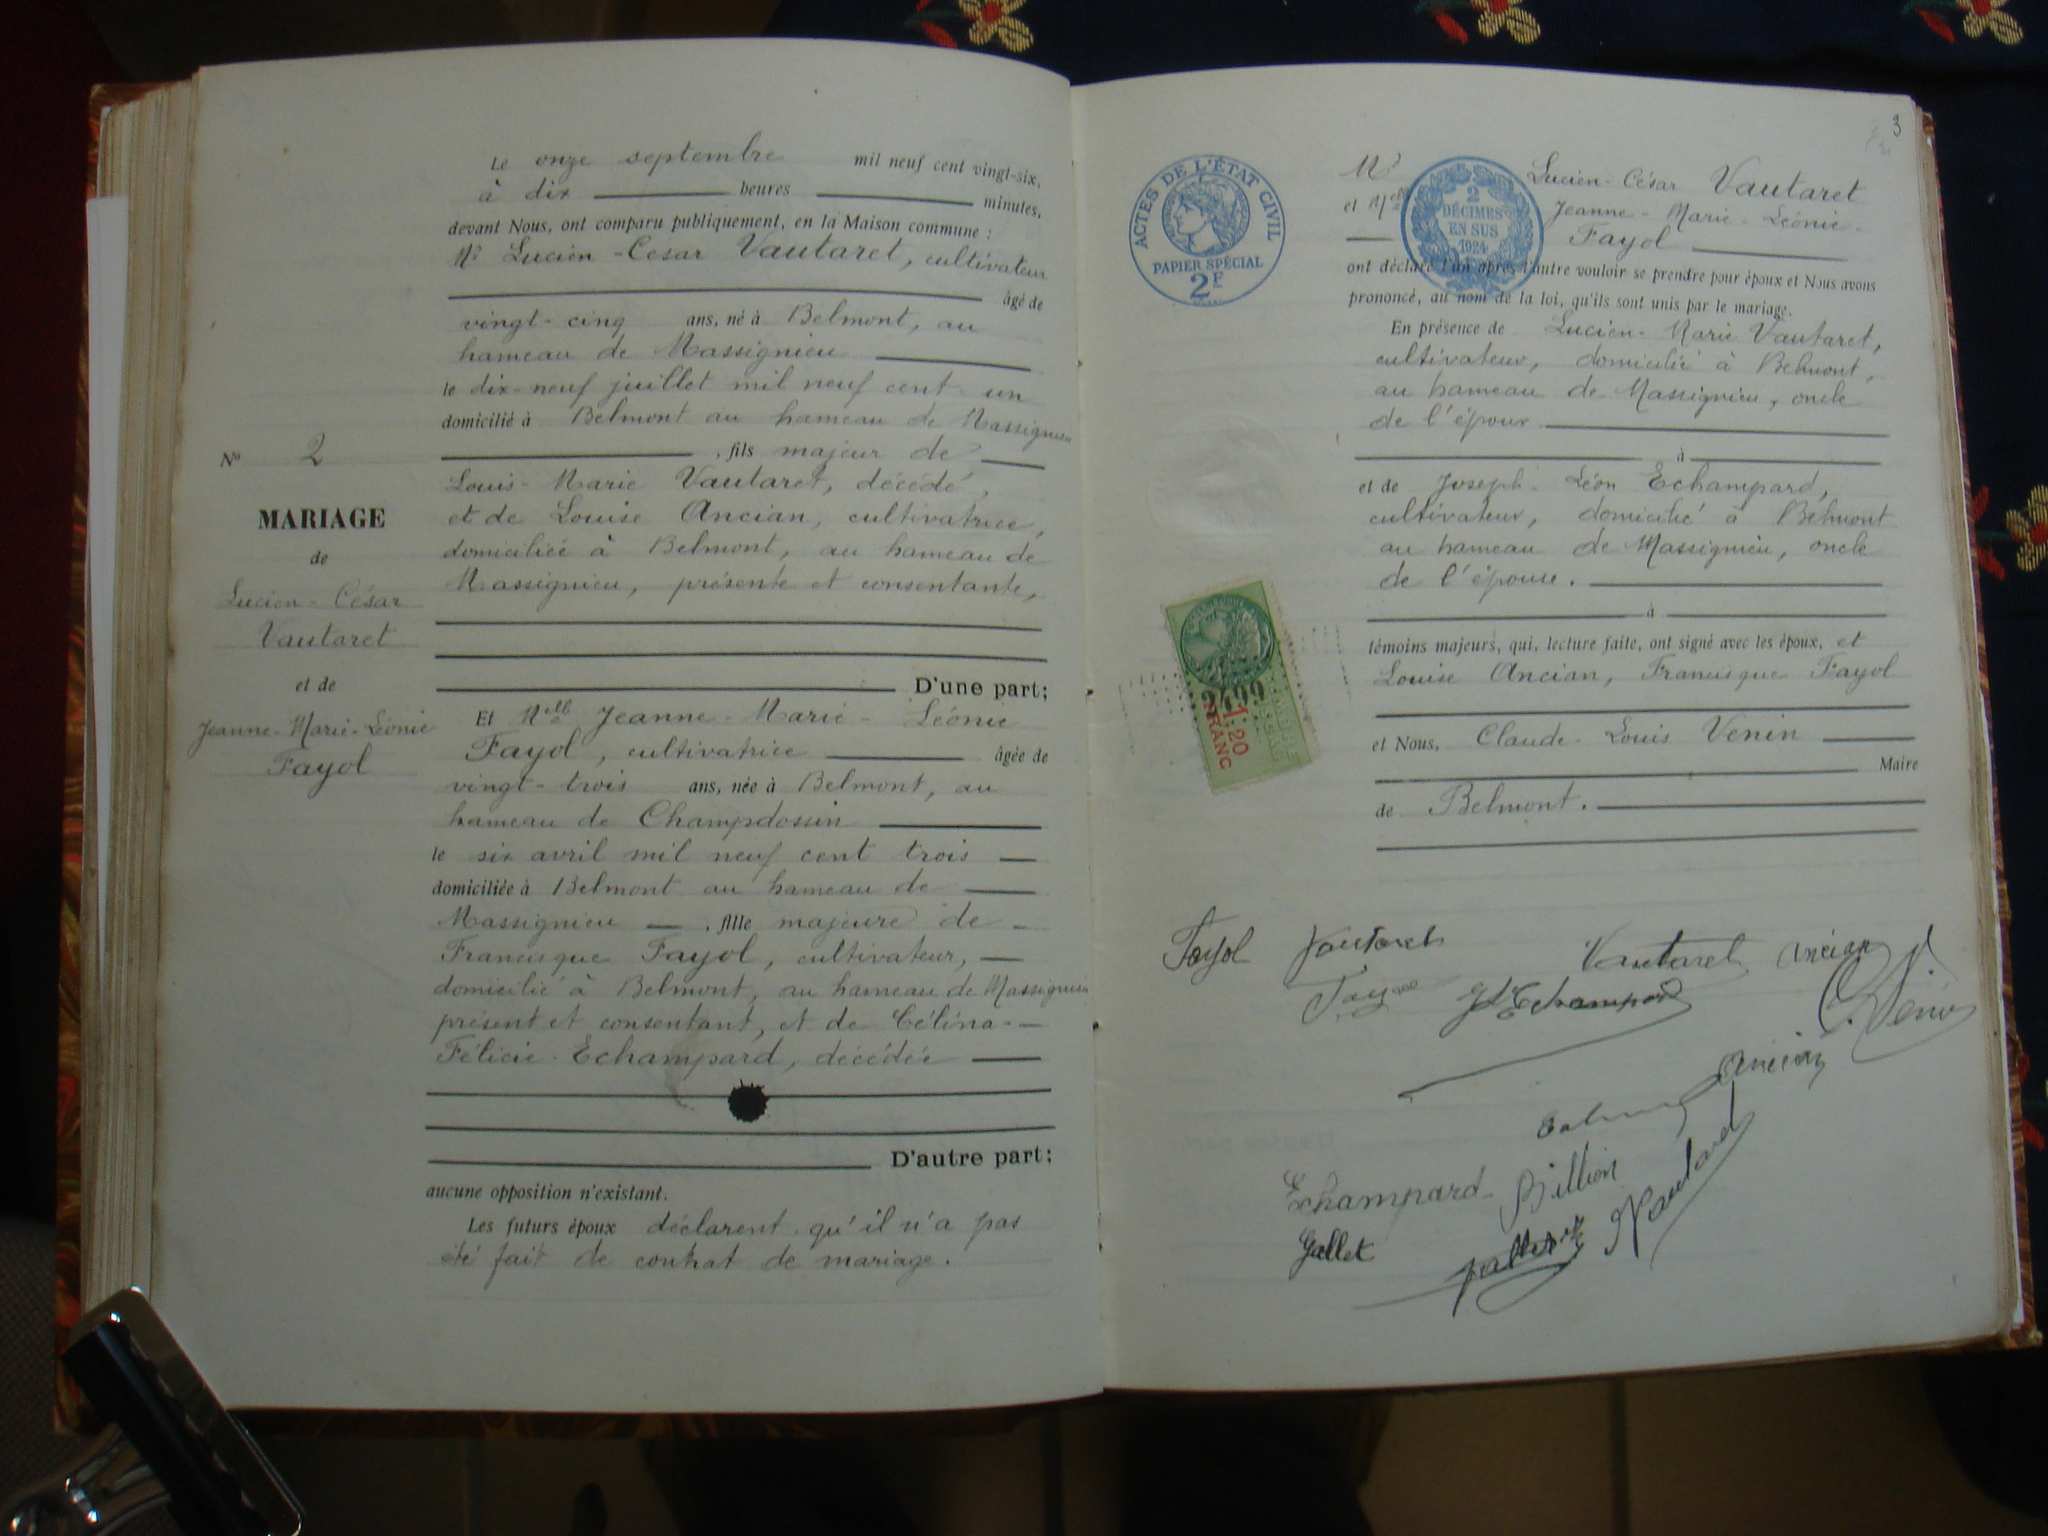 Le onze septembre mil neuf cent vingt-six,
à dix heures minutes,
devant Nous, ont comparu publiquement, en la Maison commune :
Mr Lucien-César Vautaret, cultivateur
âgé de
vingt-cinq ans, né à Belmont, au
hameau de Massignieu
le dix-neuf juillet mil neuf cent un
domicilié à Belmont au hameau de Massignieu
, fils majeur de
Louis-Marie Vautaret, décédé,
et de Louise Ancian, cultivatrice,
domiciliée à Belmont, au hameau de
Massignieu, présente et consentante,
D'une part;
Et Melle Jeanne-Marie-Léonie
Fayol, cultivatrice âgée de
vingt-trois ans, née à Belmont, au
hameau de Champdossin
le six avril mil neuf cent trois
domiciliée à Belmont au hameau de
Massignieu , fille majeure de
Francisque Fayol, cultivateur,
domicilié à Belmont, au hameau de Massignieu
présent et consentant, et de Célina-
Félicie Echampard, décédée
D'autre part;
aucune opposition n'existant.
Les futurs époux déclarent qu'il n'a pas
été fait de contrat de mariage.
No 2
MARIAGE
de
Lucien-César
Vautaret
et de
Jeanne-Marie-Léonie
Fayol
3
ACTES DE L'ÉTAT CIVIL
PAPIER SPÉCIAL
2F
2
DÉCIMES
EN SUS
1924
Mr Lucien-César Vautaret
et Melle Jeanne-Marie-Léonie-
Fayol
ont déclaré l'un après l'autre vouloir se prendre pour époux et Nous avons
prononcé, au nom de la loi, qu'ils sont unis par le mariage.
En présence de Lucien-Marie Vautaret,
cultivateur, domicilié à Belmont,
au hameau de Massignieu, oncle
de l'époux
à
et de Joseph-Léon Echampard,
cultivateur, domicilié à Belmont
au hameau de Massignieu, oncle
de l'épouse.
à
témoins majeurs, qui, lecture faite, ont signé avec les époux, et
Louise Ancian, Francisque Fayol
et Nous, Claude-Louis Venin
Maire
de Belmont.
2499
1.20
FRANC
Fayol Vautaret Vautaret Ancian
Fayol JL Echampard C Venin
Ancian
Echampard Billion
Gallet